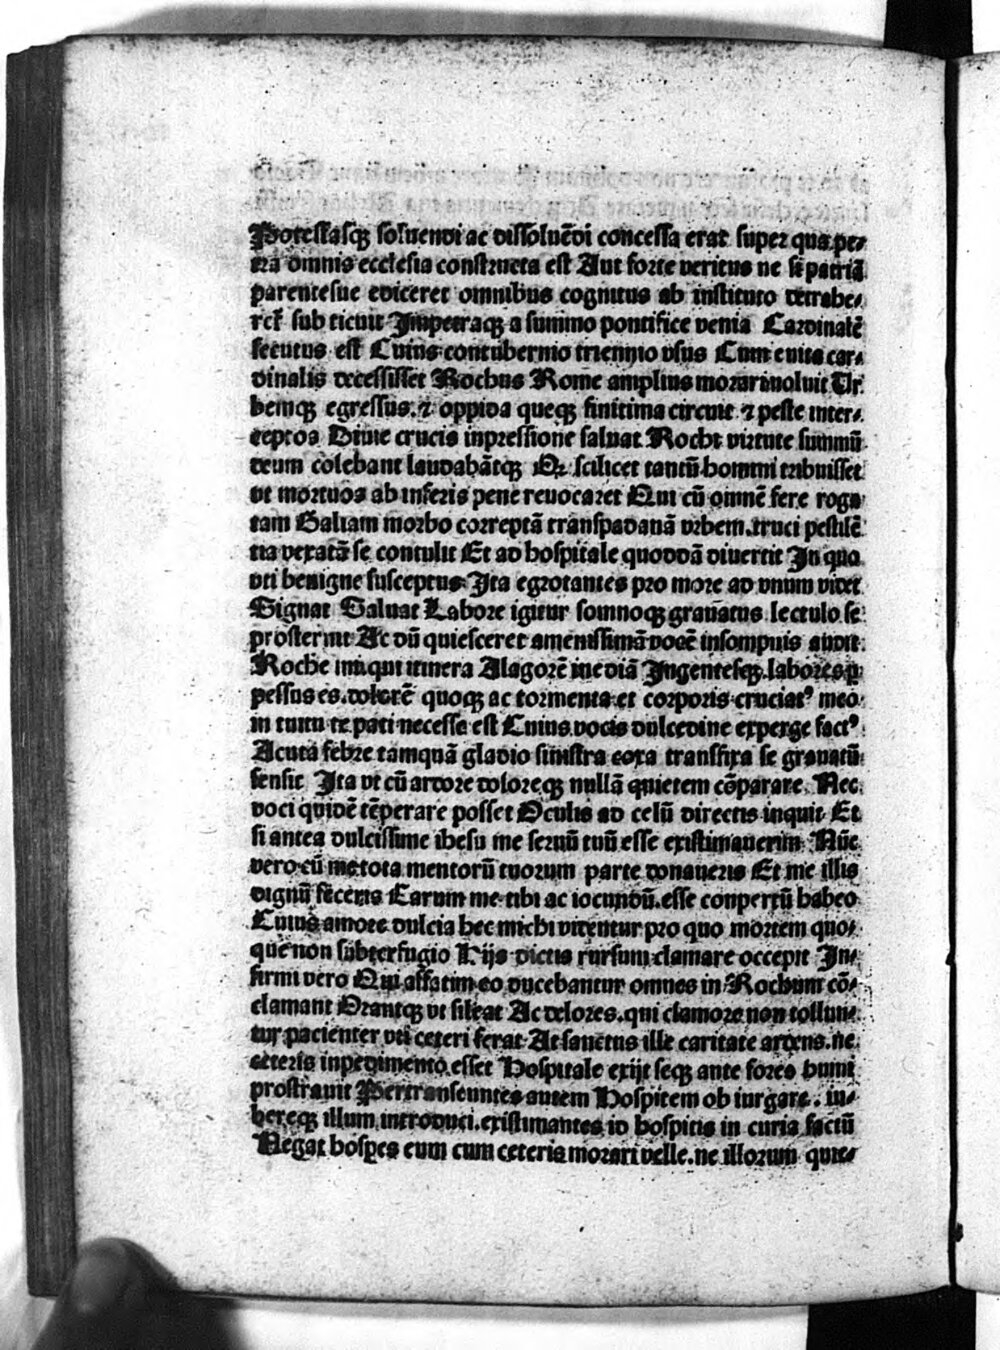 Potestasqꝫ soluendi ac dissoluēdi concessa erat super qua pe⸗
tra omnis ecclesia constructa est Aut forte veritus ne si patriā
parentesue ediceret omnibus cognitus ab instituto detrahe⸗
ret̉ sub ticuit Impetraqꝫ a summo pontifice venia Cardinalē
secutus est Cuius contubernio triennio vsus Cum e vita car⸗
dinalis decessisset Rochus Rome amplius morari noluit Ur
bemqꝫ egressus ⁊ oppida queqꝫ finitima circuit ⁊ peste inter⸗
cepta Diuie crucis inpressione saluat Rochi virtute summū
deum colebant laudabātqꝫ Qꝛ scilicet tantū homini tribuisset
vt mortuos ab inferis pene reuocaret Qui cū omnē fere roga
tam Galiam morbo correptā transpadanā vrbem truci pestilē
tia vexatā se contulit Et ad hospitale quoddā diuertit In quo
vti benigne susceptus Ita egrotantes pro more ad vnum videt
Signat Saluat Labore igitur somnoqꝫ grauatus lectulo se
prosternit Ac dū quiesceret amenissimā vocē insompnis audit
Roche inqui itinera Alagorē inediā Ingentesqꝫ labores ꝑ
pessus es. dolorē quoqꝫ ac tormenta et corporis cruciatꝰ meo
in tuitu te pati necesse est Cuius vocis dulcedine experge factꝰ
Acuta febre tamquā gladio sinistra coxa transfixa se grauatū
sensit Ita vt cū ardore doloreqꝫ nullā quietem cōparare Nec
voci quidē tēperare posset Oculis ad celū directis inquit Et
si antea dulcissime ihesu me seruū tuū esse existimauerim Nūc
vero cū me tota mentorū tuorum parte donaueris Et me illis
dignū feceris Carum me tibi ac iocundū esse conpertū habeo
Cuius amore dulcia hec michi videntur pro quo mortem quo⸗
que non subterfugio Hijs dictis rursum clamare occepit In⸗
firmi vero Qui affatim eo ducebantur omnes in Rochum cō⸗
clamant Orantqꝫ vt sileat Ac dolores qui clamore non tollun⸗
tur pacienter vti ceteri ferat At sanctus ille caritate ardens. ne
ceteris inpedimento esset Hospitale exijt seqꝫ ante fores humi
prostrauit Pertranseuntes autem Hospitem ob iurgare. iu⸗
bereqꝫ illum introduci existimantes id hospitis in curia factū
Negat hospes eum cum ceteris morari velle. ne illorum quie⸗